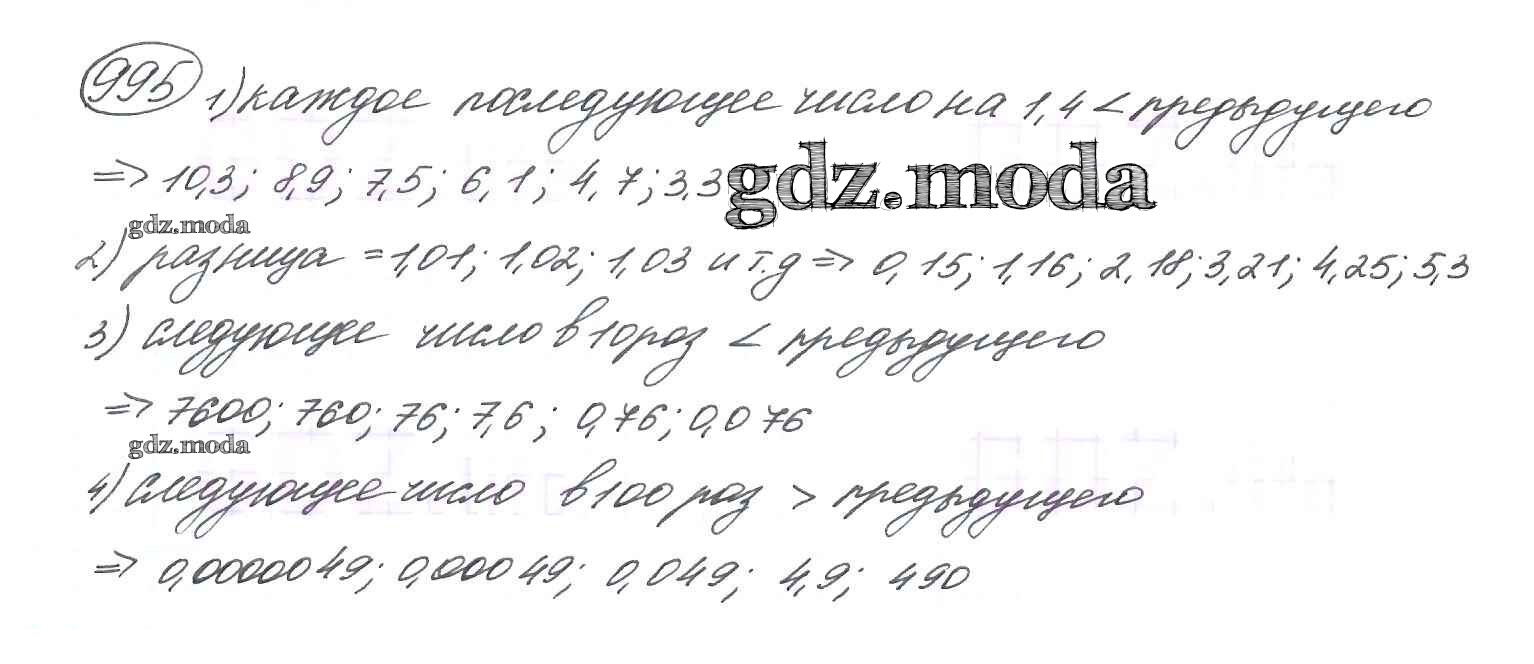 995 1) каждое последующее число на 1,4 < предыдущего
=> 10,3; 8,9; 7,5; 6,1; 4,7; 3,3
gdz.moda
gdz.moda
2) разница = 1,01; 1,02; 1,03 и т.д => 0,15; 1,16; 2,18; 3,21; 4,25; 5,3
3) следующее число в 10 раз < предыдущего
=> 7600; 760; 76; 7,6; 0,76; 0,076
gdz.moda
4) следующее число в 100 раз > предыдущего
=> 0,0000049; 0,00049; 0,049; 4,9; 490